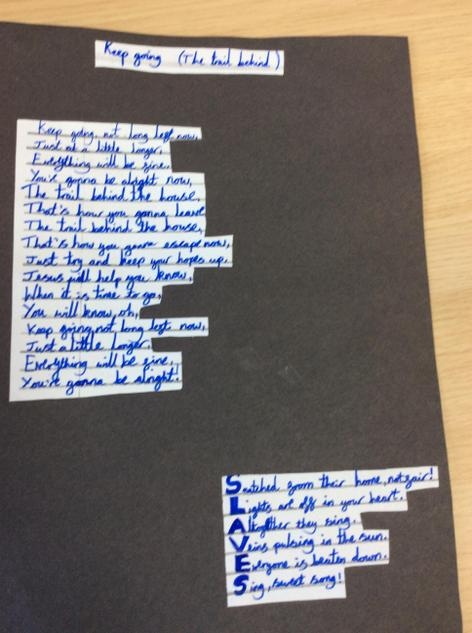 Keep going (The trail behind)
Keep going, not long left now,
Just at a little longer,
Everything will be fine,
You're gonna be alright now,
The trail behind the house,
That's how you gonna leave
The trail behind the house,
That's how you gonna escape now,
Just try and keep your hopes up,
Jesus will help you know,
When it is time to go,
You will know, oh,
Keep going, not long left now,
Just a little longer,
Everything will be fine,
You're gonna be alright!
Snatched from their home, not fair!
Lights are off in your heart.
Altogether they sing.
Veins pulsing in the sun.
Everyone is beaten down.
Sing, sweet song!